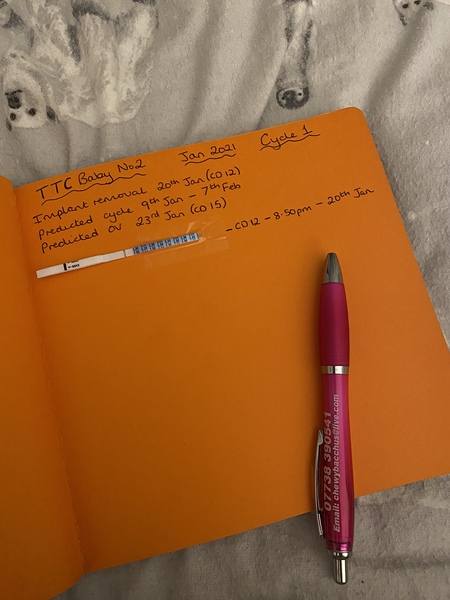 TTC Baby No2 Jan 2021 Cycle 1
Implant removal 20th Jan (CD12)
Predicted cycle 9th Jan - 7th Feb
Predicted OV 23rd Jan (CD15)
- CD12 - 8:50pm - 20th Jan
07738 390541
Email: chewybacchus@live.com